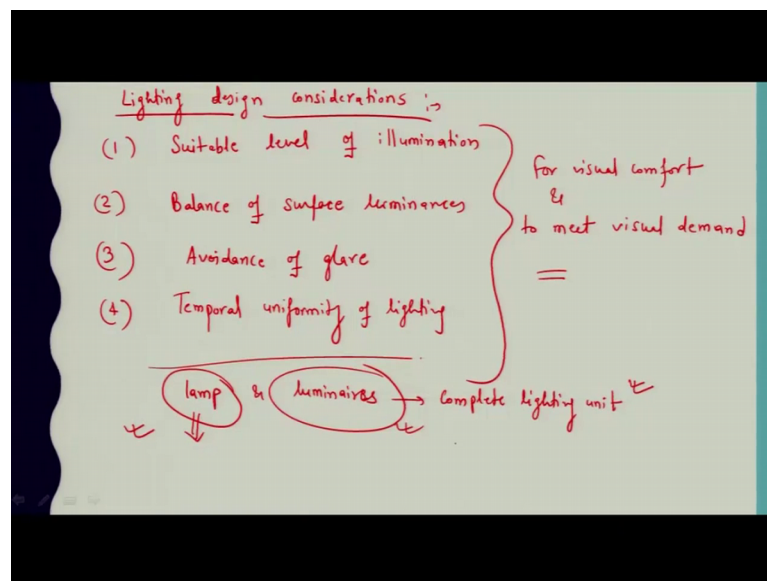 Lighting design considerations :-
(1) Suitable level of illumination
(2) Balance of surface luminances
(3) Avoidance of glare
(4) Temporal uniformity of lighting
for visual comfort
&
to meet visual demand
lamp & luminaires → complete lighting unit